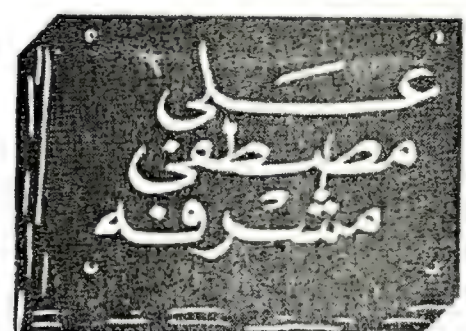 على
مصطفى
مشرفه